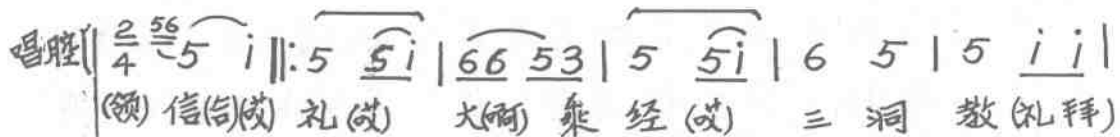 唱腔 2/4 56 5 i ‖: 5 5i | 66 53 | 5 5i | 6 5 | 5 i i |
(领) 信(信)(哎) 礼(哎) 大(啊) 乘 经(哎) 三 洞 教(礼拜)